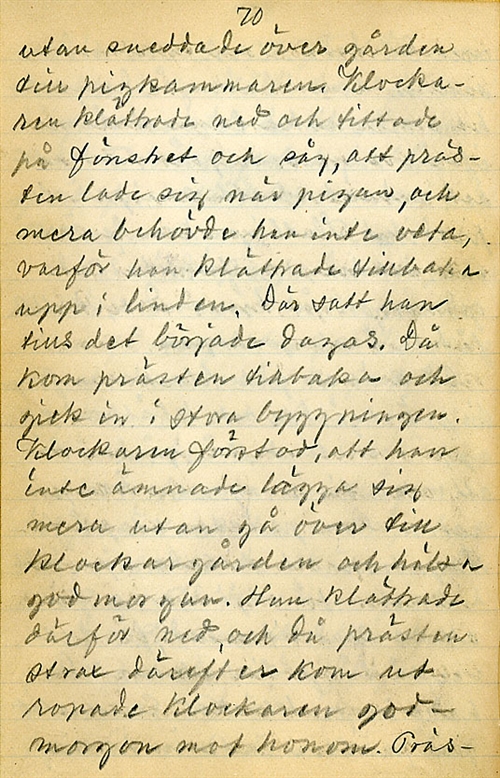 70
utan sneddade över gården
till pigkammaren. Klocka-
ren klättrade ned och tittade
på fönstret och såg, att präs-
ten lade sig när pigan, och
mera behövde han inte veta,
varför han klättrade tillbaka
upp i linden. Där satt han
tills det började dagas. Då
kom prästen tillbaka och
gick in i stora byggningen.
Klockaren förstod, att han
inte ämnade lägga sig
mera utan gå över till
klockargården och hälsa
godmorgon. Han klättrade
därför ned, och då prästen
strax därefter kom ut
ropade klockaren god-
morgon mot honom. Präs-